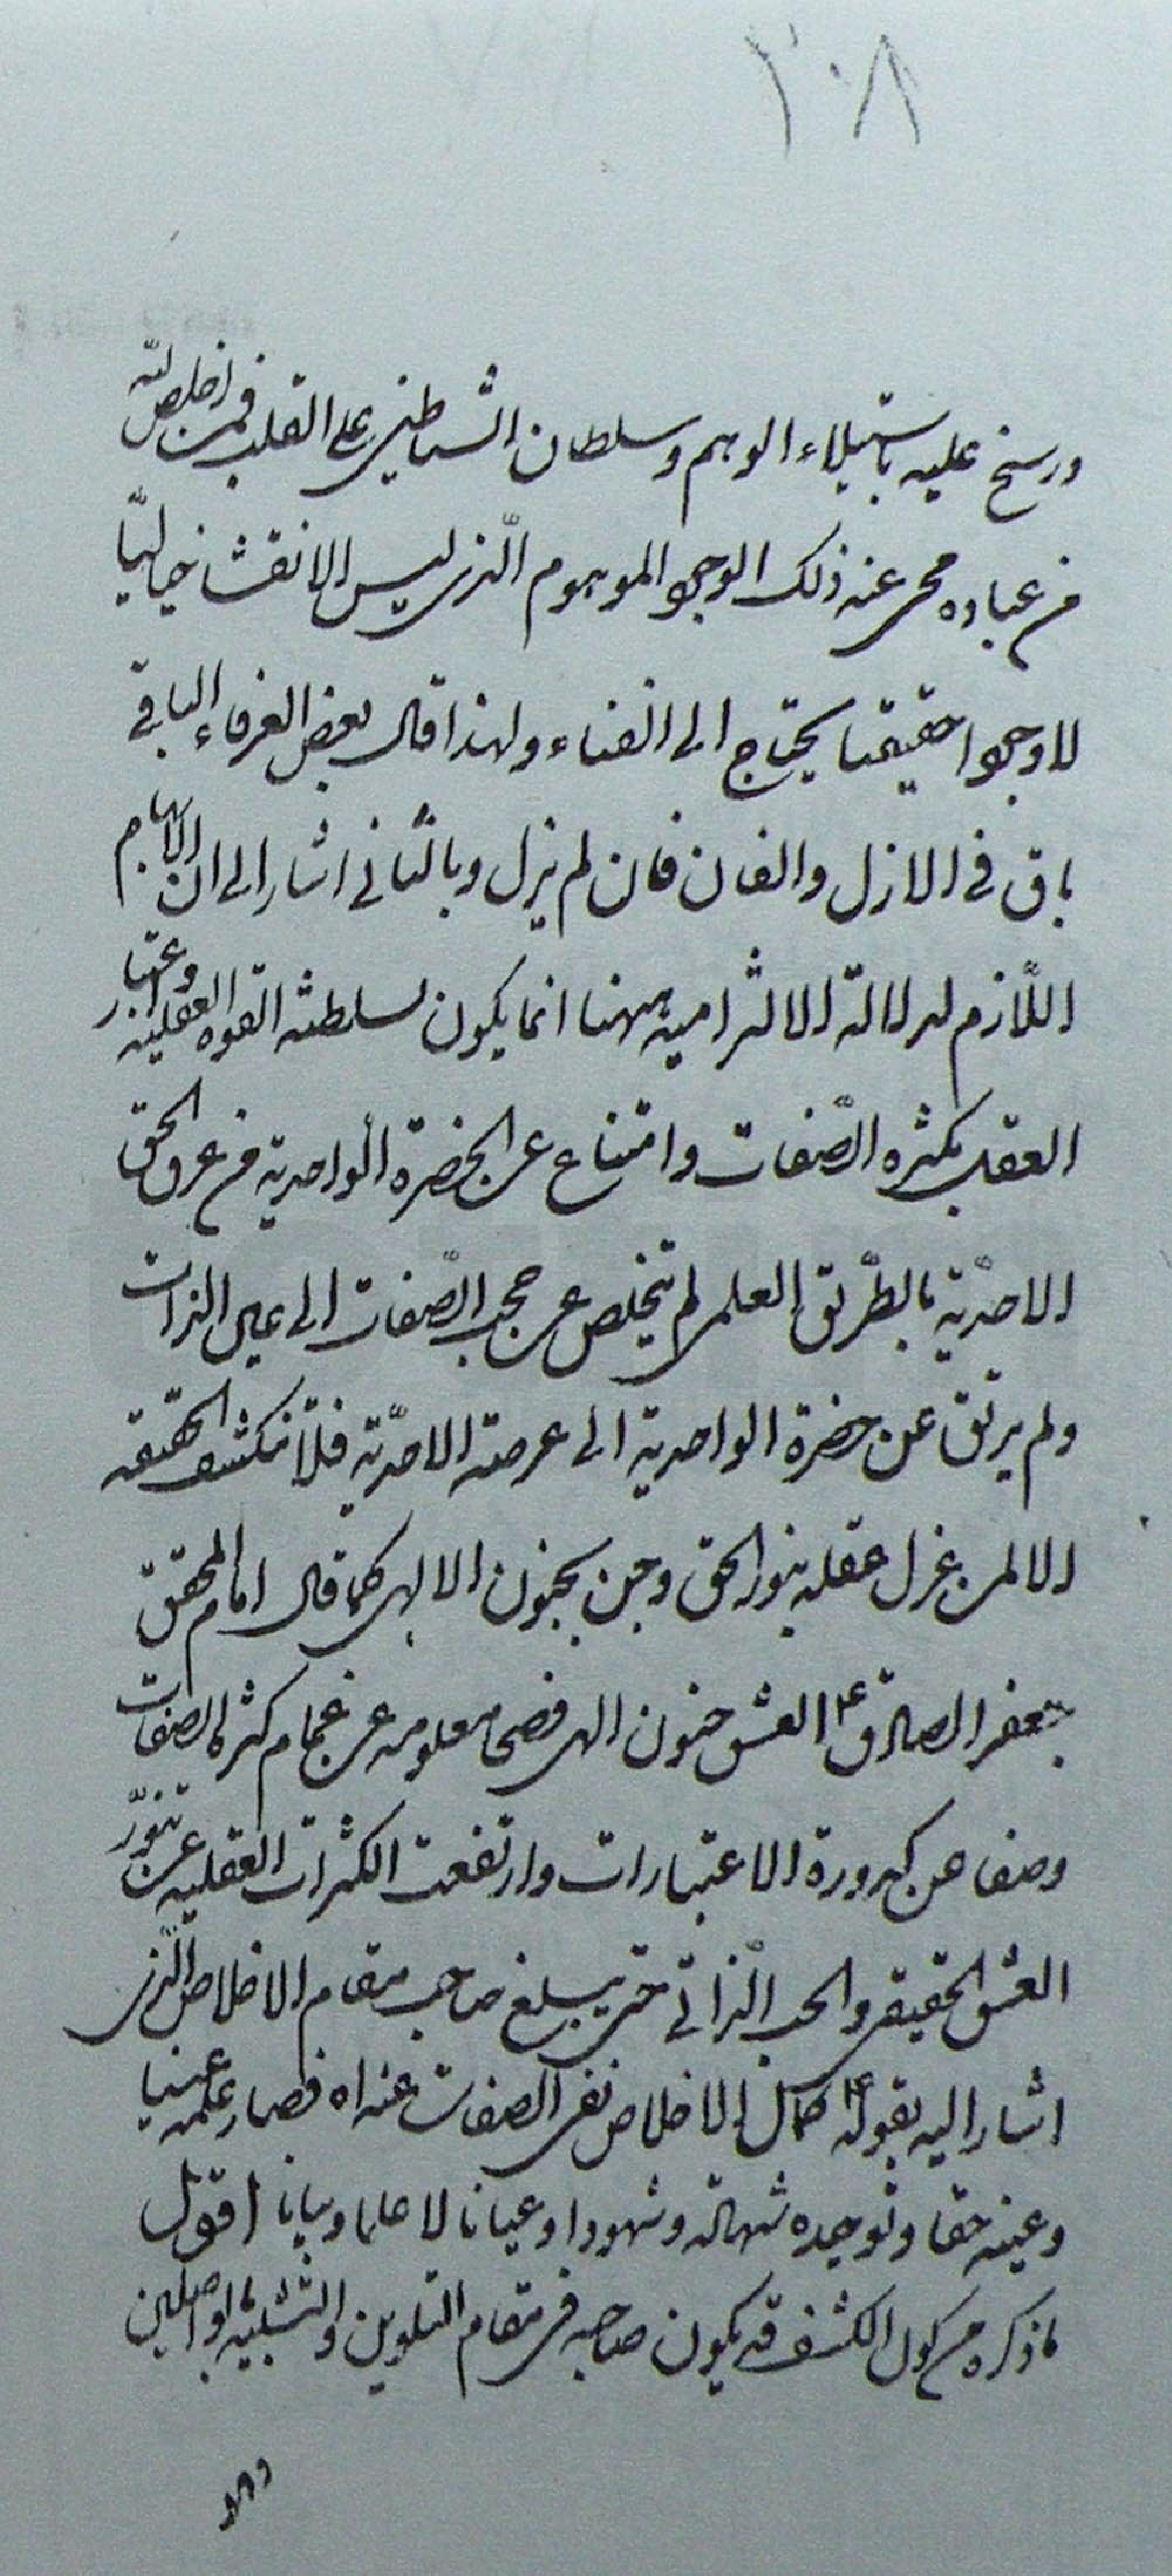 ٢٠٨
ورسخ عليه باستيلاء الوهم وسلطان الشياطين على القلب فمن اخلص لله
من عباده محى عنه ذلك الوجود الموهوم الّذى ليس الا نقشا خياليّا
لا وجودا حقيقيا يحتاج الى الفناء ولهذا قال بعض العرفاء الباقى
باق فى الازل والفان فان لم يزل وبالثانى اشار الى ان الابهام
اللّازم لدلالة الالتزامية ههنا انما يكون لسلطنة القوه العقلية واعتبار
العقل بكثره الصّفات وامتناع عن الحضرة الواحدية من عرف الحق
الاحدّية بالطّريق العلمى لم يتخلص عن حجب الصّفات الى عين الذات
ولم يرتق عن حضرة الواحدية الى عرصة الاحدّية فلا تنكشف الحقيقه
الا لمن عزل عقله بنور الحق وجن بجنون الالهى كما قال امام المحقق
جعفر الصادق ع العشق جنون الهى فصحا معلومه عن غمام كثرة الصفات
وصفا عن كدورة الاعتبارات وارتفعت الكثرات العقليه عن تنوّر
العشق الحقيقى والحب الّذاتى حتى يبلغ صاحب مقام الاخلاص الّذى
اشار اليه بقوله ع كمال الاخلاص نفى الصفات عنه اه فصار علمه عينيا
وعينه حقا وتوحيده شهادة وشهودا وعيانا لا علما وبيانا اقول
ما ذكره من كون الكشف قد يكون صاحبه فى مقام التلوين والتشبيه
وهو